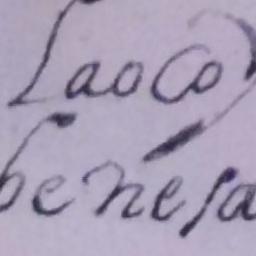 Laoco
benesa